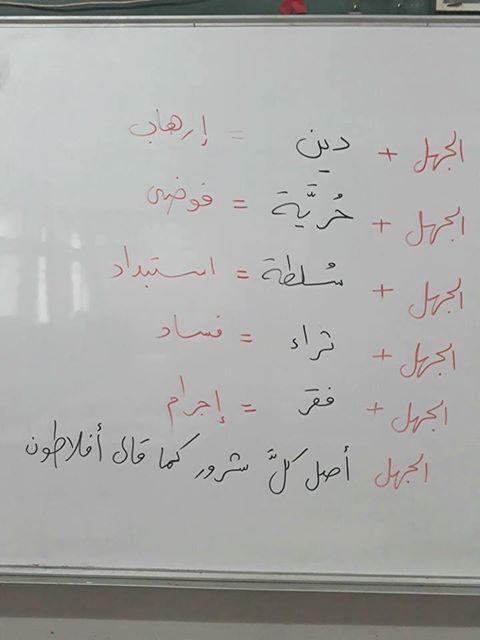 الجهل + دين = إرهاب
الجهل + حُريَّة = فوضى
الجهل + سُلطة = استبداد
الجهل + ثراء = فساد
الجهل + فقر = إجرام
الجهل أصل كلَّ شرور كما قال أفلاطون